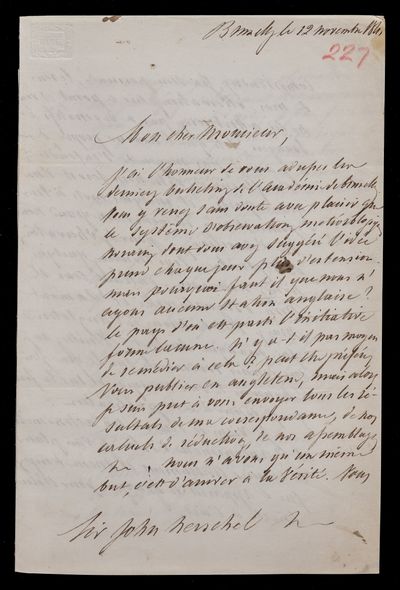 Bruxelles le 12 novembre 184
227
Mon cher Monsieur,
j'ai l'honneur de vous adresser les
derniers bulletins de l'académie de bruxelles
vous y verrez sans doute avec plaisir que
le système d'observations météorologiques
horaires dont vous avez suggéré l'idée
prend chaque jour plus d'extension.
mais pourquoi faut il que nous n'
ayons aucune station anglaise?
le pays d'où est parti l'initiative
forme lacune. N'y a-t-il pas moyen
de remédier à cela? peut être préférez
vous publier en angleterre, mais alors
je suis prêt à vous envoyer tous les ré-
sultats de ma correspondance, de nos
calculs de réduction, de nos assemblages
nous n'avons qu'un même
but, c'est d'arriver à la vérité. Vous
Sir John Herschel